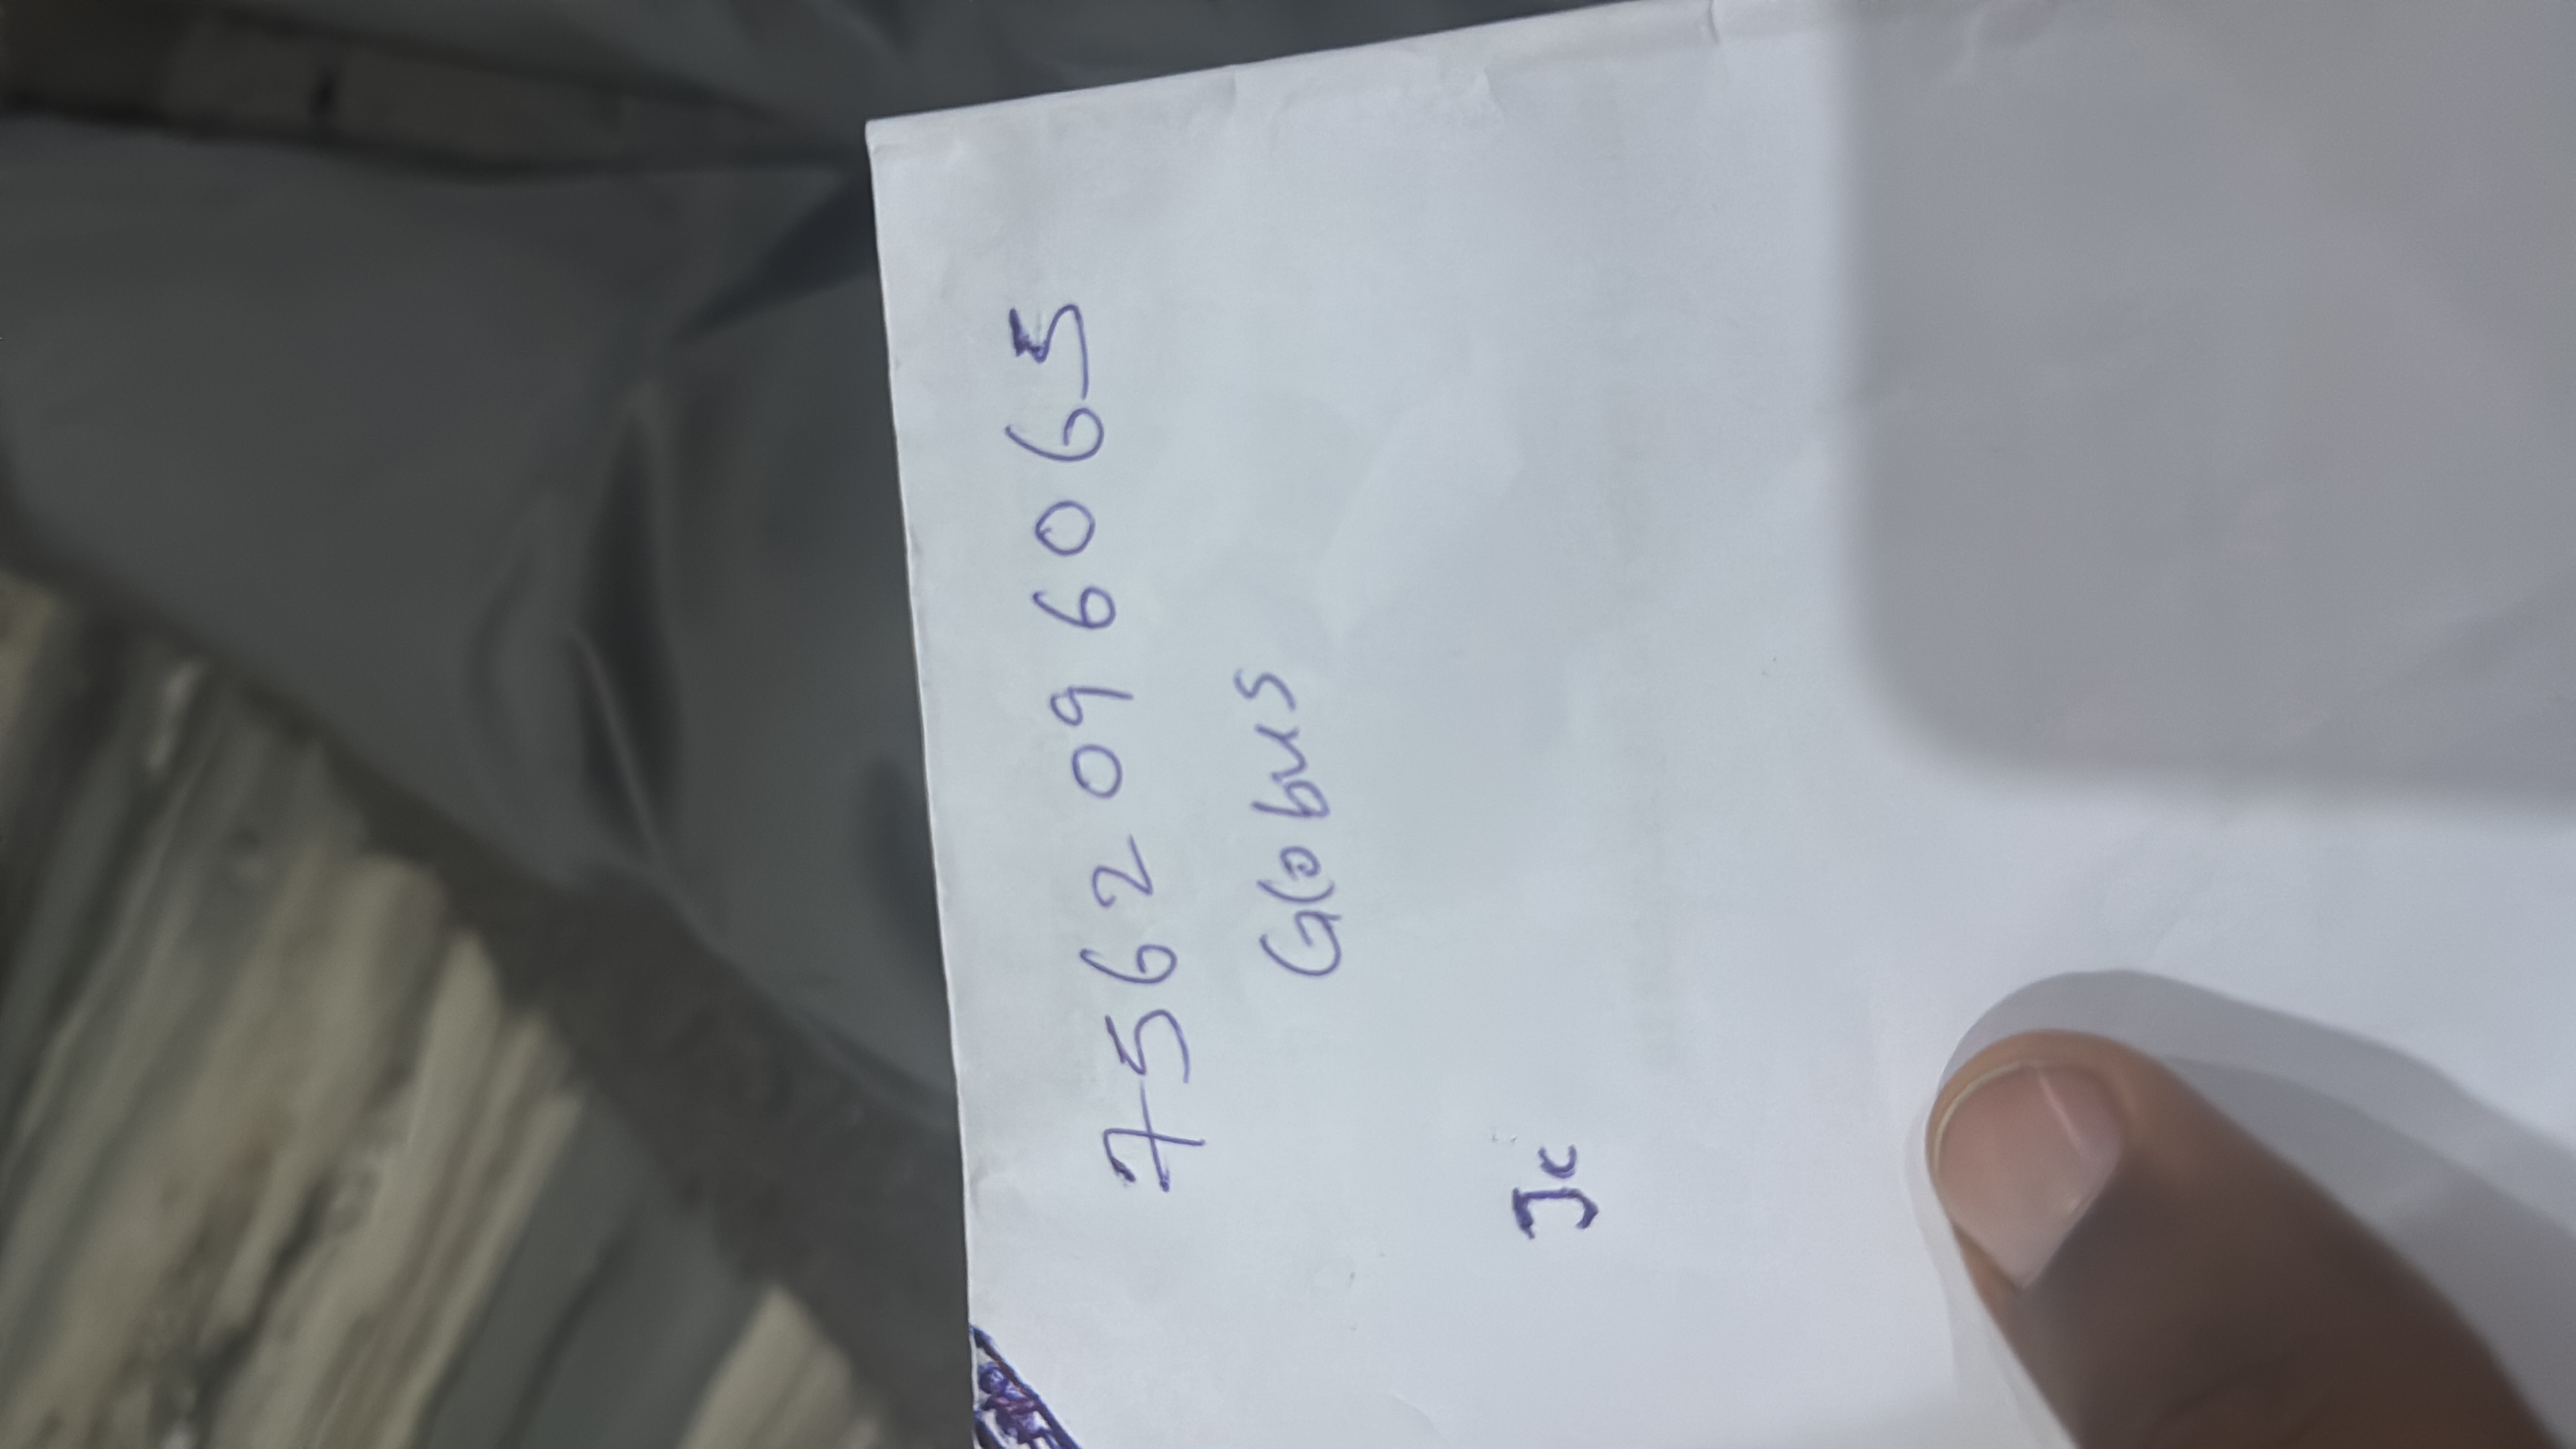 7562096065
Globus
Jc